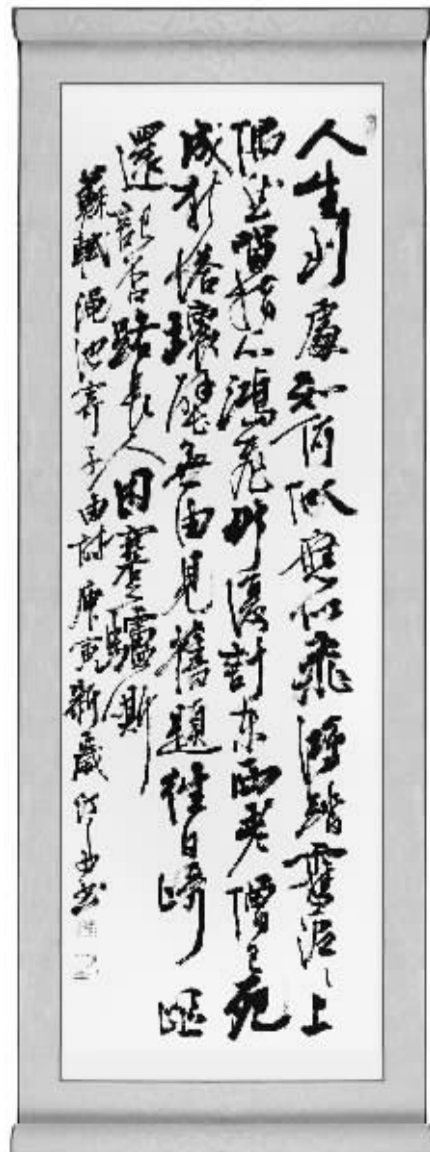 人生到處知何似應似飛鴻踏雪泥〻上
偶然留指爪鴻飛那復計東西老僧已死
成新塔壞壁無由見舊題往日崎嶇
還記否路長人困蹇驢嘶
蘇軾澠池寄子由詩庚寅新歲書